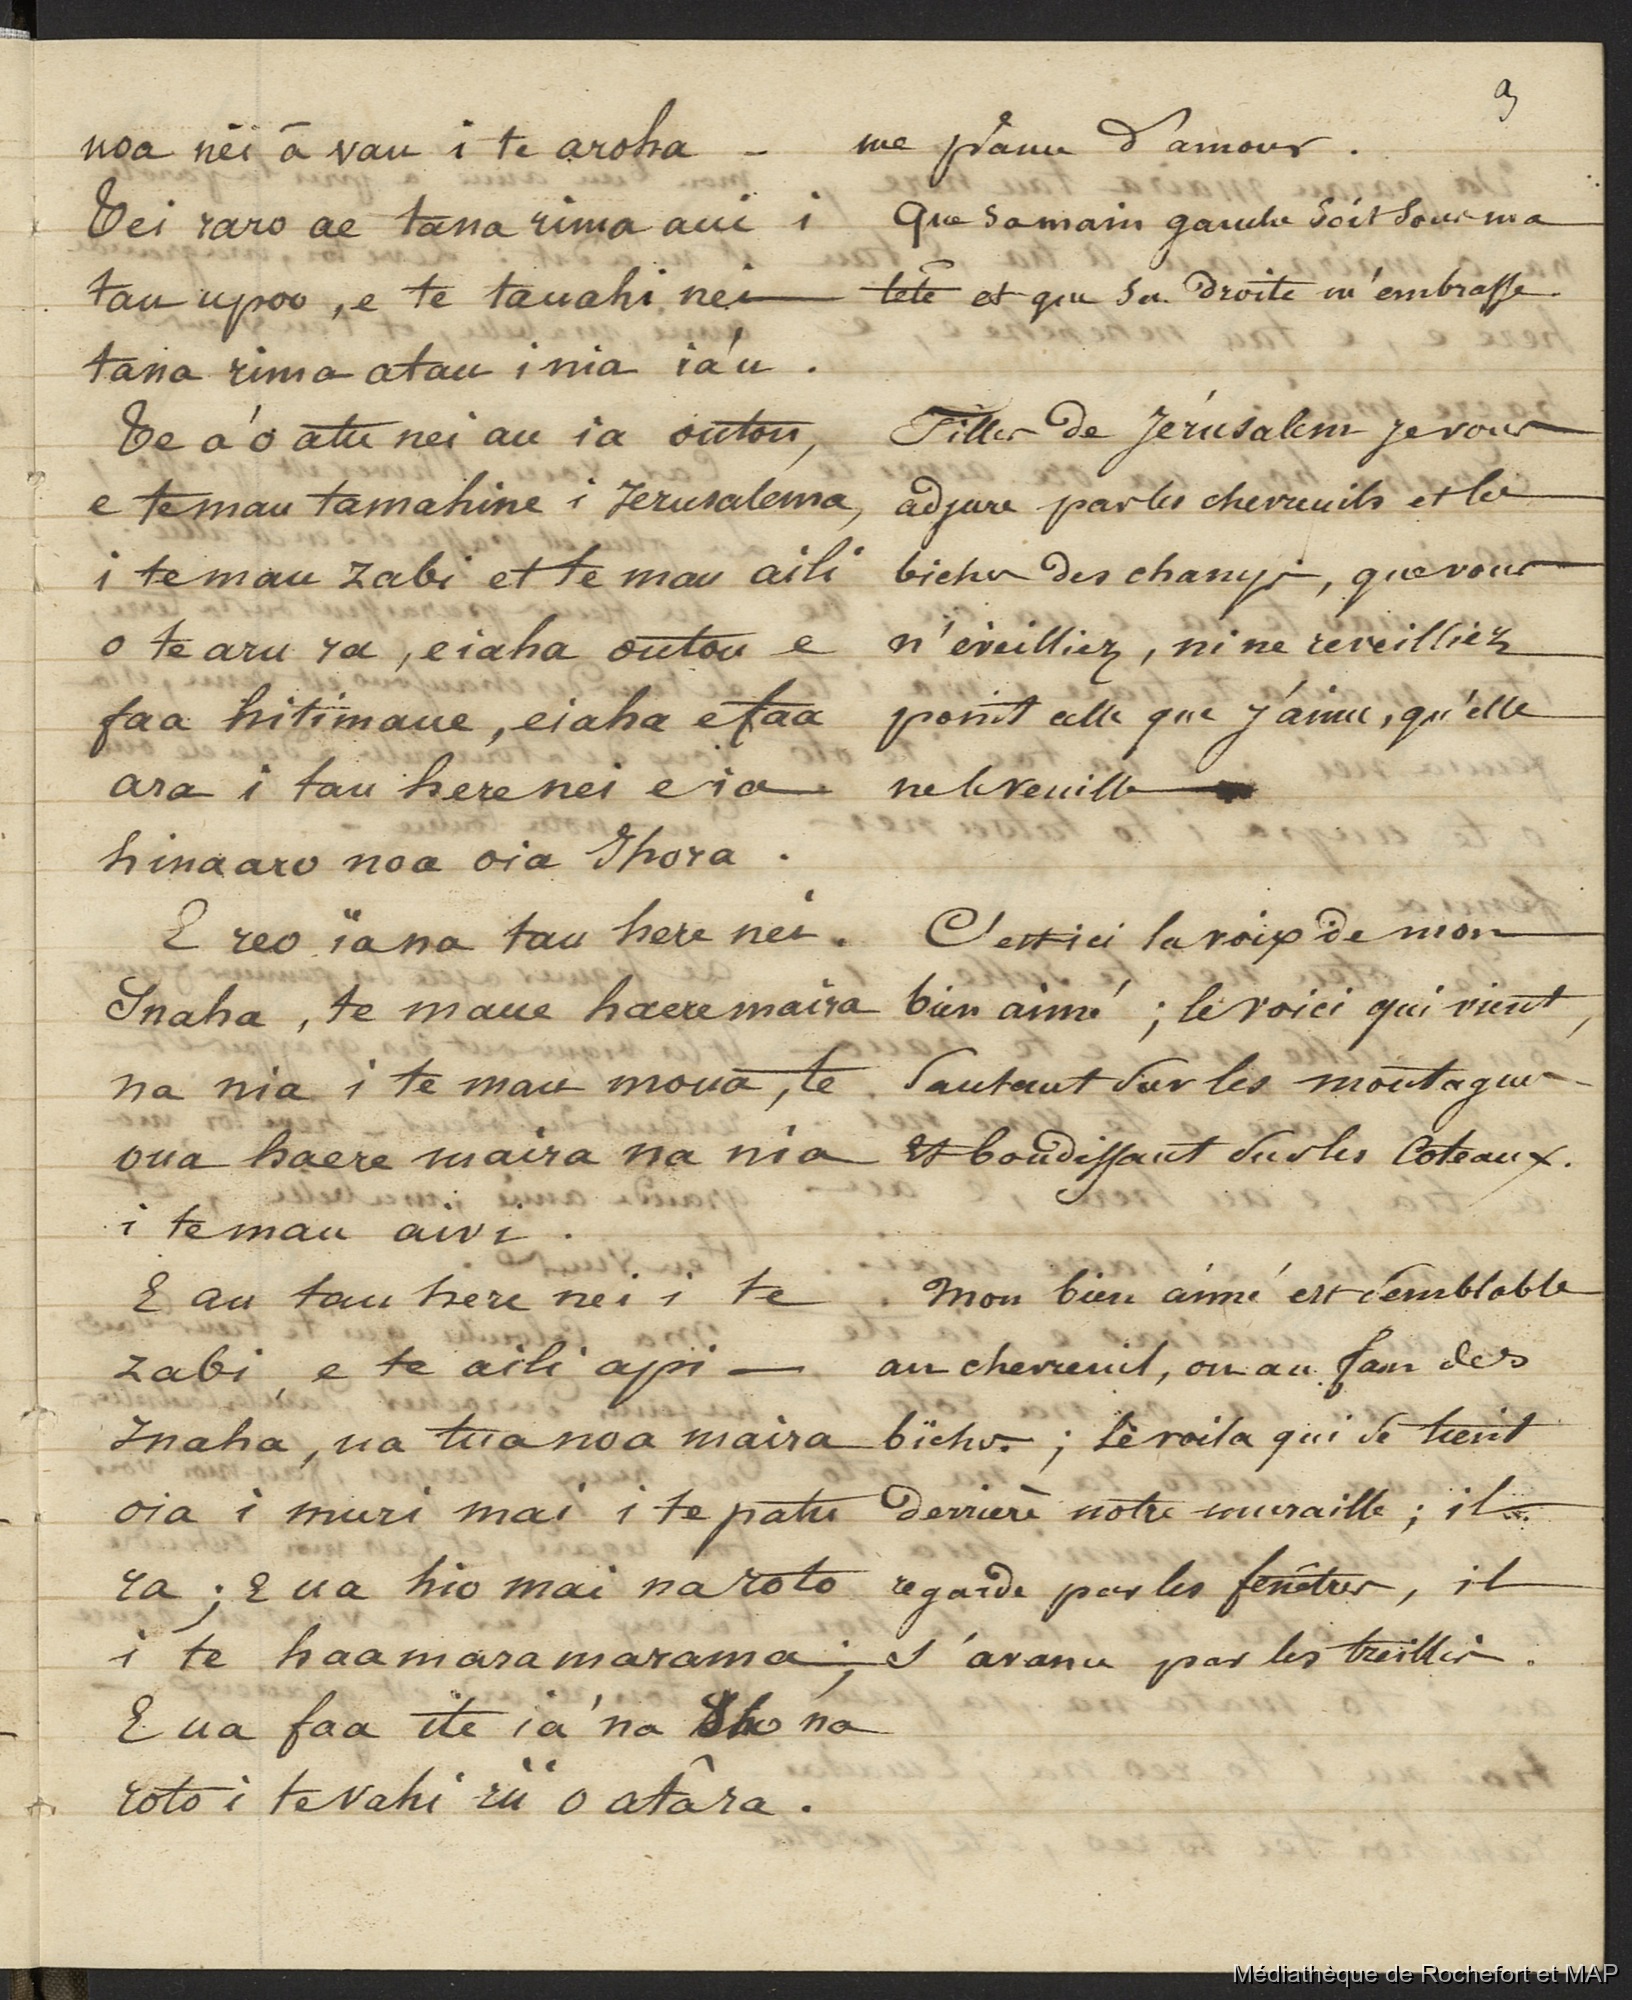 9
noa nei â vau i te aroha -
Tei raro ae tana rima aui i
tau upoo, e te tauahi nei
tana rima atau i nia ia'u.
Te a'o atu nei au ia outou,
e te mau tamahine i Jerusalema,
i te mau zabi et te mau aili
o te aru ra, eiaha outou e
faa hitimaue, eiaha e faa
ara i tau here nei e ia
hinaaro noa oia Ihora.
E reo ïana tau here nei.
Inaha, te maue haere maira
na nia i te mau moua, te
oua haere maira na nia
i te mau aivi.
E au tau here nei i te
zabi, e te aili api —
Inaha, ua tia noa maira
oia i muri mai i te patu
ra; E ua hio mai na roto
i te haamaramarama;
E ua faa ite ia'na Iho na
roto i te vahi rii o atâra.
me pâme d'amour.
Que sa main gauche soit sous ma
tête et que sa droite m'embrasse.
Filles de Jérusalem je vous
adjure par les chevreuils et les
biches des champs, que vous
n'éveilliez, ni ne reveilliez
point celle que j'aime, qu'elle
ne le veuille
C'est ici la voix de mon
bien aimé ; le voici qui vient,
sautant sur les montagnes
et bondissant sur les coteaux.
Mon bien aimé est semblable
au chevreuil, ou au fan des
biches ; le voila qui se tient
derrière notre muraille ; il
regarde par les fenêtres, il
s'avance par les treillis.
Médiathèque de Rochefort et MAP